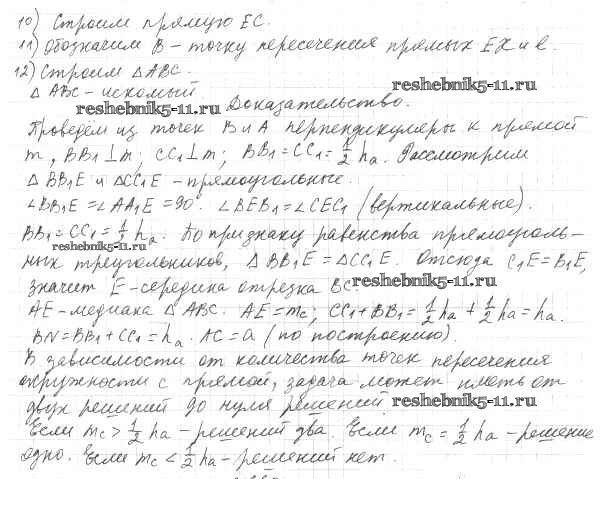 10) Строим прямую EC.
11) Обозначим B – точку пересечения прямых EX и l.
12) Строим △ABC.
△ ABC – искомый.
reshebnik5-11.ru
reshebnik5-11.ru
Доказательство.
Проведём из точек B и A перпендикуляры к прямой
m, BB₁ ⊥ m; CC₁ ⊥ m; BB₁ = CC₁ = 1/2 hₐ. Рассмотрим
△ BB₁E и △CC₁E – прямоугольные.
∠BB₁E = ∠AA₁E = 90°. ∠BEB₁ = ∠CEC₁ (вертикальные).
BB₁ = CC₁ = 1/2 hₐ. По признаку равенства прямоуголь-
reshebnik5-11.ru
ных треугольников, △ BB₁E = △CC₁E. Отсюда C₁E = B₁E,
значит E – середина отрезка BC.
reshebnik5-11.ru
AE – медиана △ ABC. AE = mc; CC₁ + BB₁ = 1/2 hₐ + 1/2 hₐ = hₐ.
BN = BB₁ + CC₁ = hₐ. AC = a (по построению).
В зависимости от количества точек пересечения
окружности с прямой, задача может иметь от
двух решений до нуля решений.
reshebnik5-11.ru
Если mc > 1/2 hₐ – решений два. Если mc = 1/2 hₐ – решение
одно. Если mc < 1/2 hₐ – решений нет.